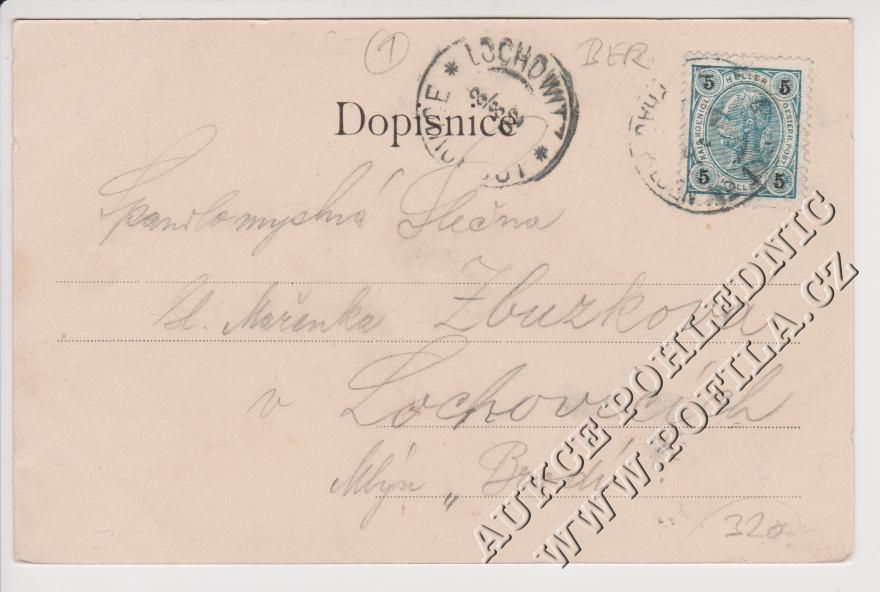 1
BER
* LOCHOWITZ *
8/8 02
5 HELLER 5
KAIS. KOENIGL.
OESTERR. POST
5 HELLER 5
Dopisnice
Slečna
sl. Mařenka Zbuzkova
v Lochovicích
Mlýn „
320
AUKCE POHLEDNIC
WWW.POFILA.CZ